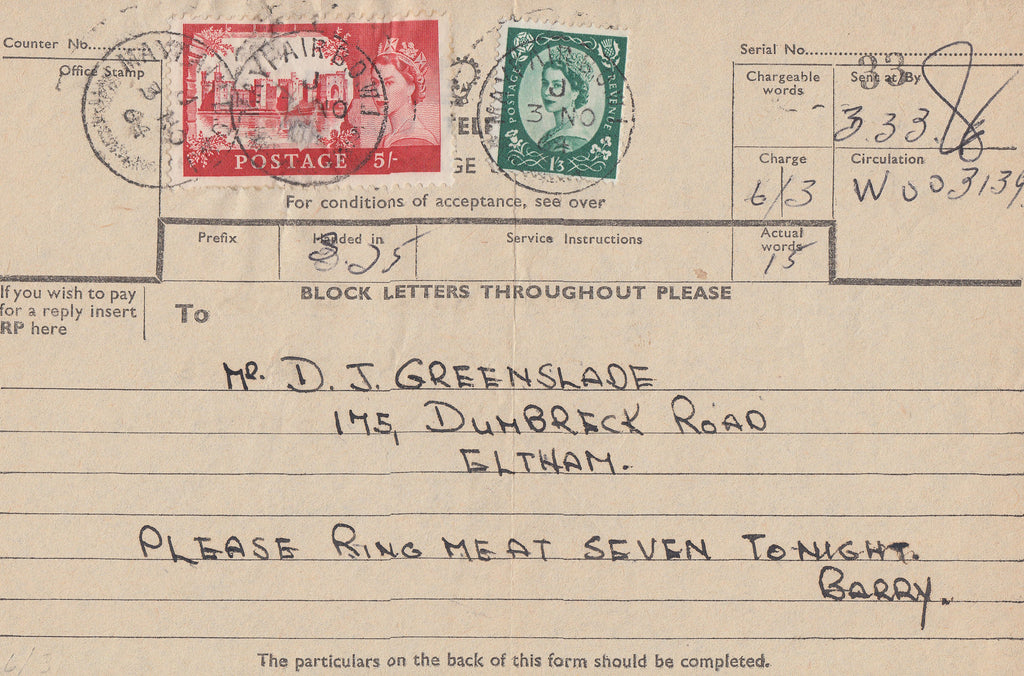 Counter No.
Office Stamp
POSTAGE 5/-
POSTAGE REVENUE
1'3
MAYFAIR
3 NO
Serial No.
33
Chargeable words
Sent at/By
3.33.
Charge
6/3
Circulation
W003139
For conditions of acceptance, see over
Prefix
Handed in
3.25
Service Instructions
Actual words
15
If you wish to pay
for a reply insert
RP here
BLOCK LETTERS THROUGHOUT PLEASE
To
MR. D. J. GREENSLADE
175, DUMBRECK ROAD
ELTHAM.
PLEASE RING ME AT SEVEN TONIGHT.
BARRY.
6/3
The particulars on the back of this form should be completed.